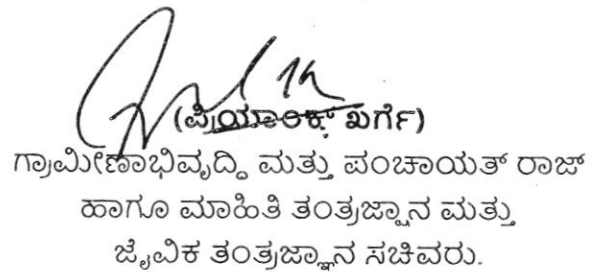 (ಪ್ರಿಯಾಂಕ್ ಖರ್ಗೆ)
ಗ್ರಾಮೀಣಾಭಿವೃದ್ಧಿ ಮತ್ತು ಪಂಚಾಯತ್ ರಾಜ್
ಹಾಗೂ ಮಾಹಿತಿ ತಂತ್ರಜ್ಞಾನ ಮತ್ತು
ಜೈವಿಕ ತಂತ್ರಜ್ಞಾನ ಸಚಿವರು.